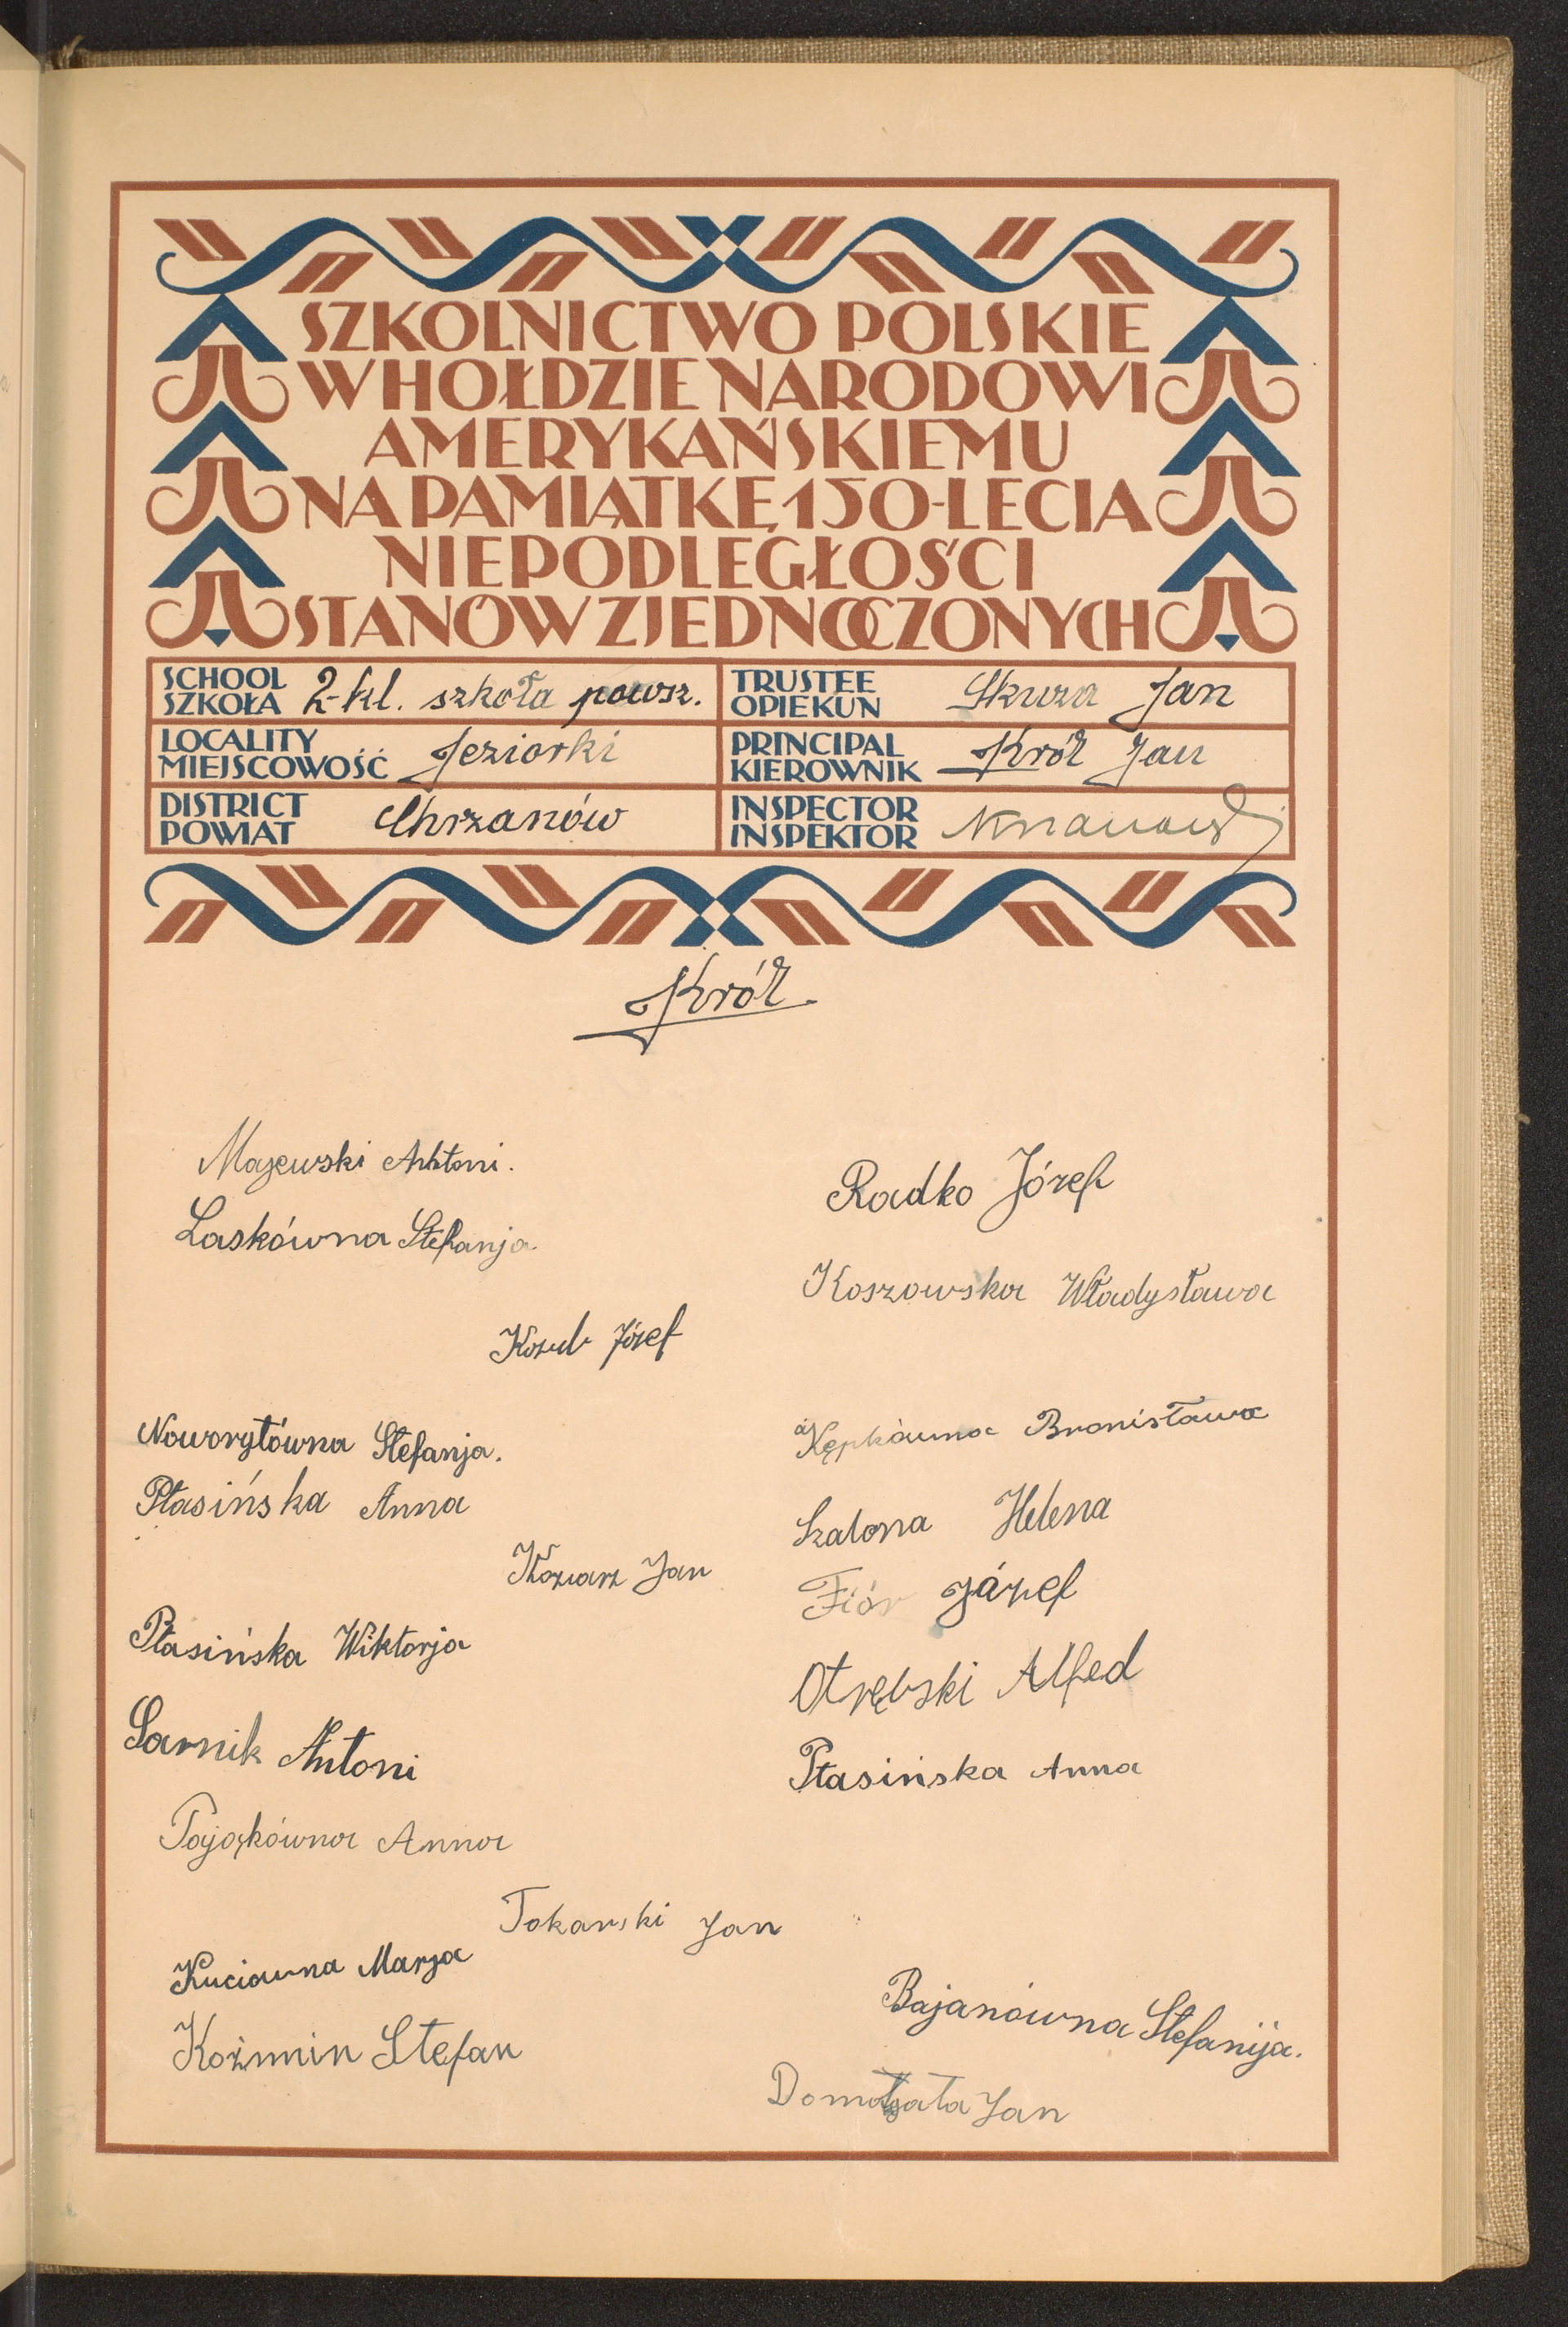 SZKOLNICTWO POLSKIE
W HOŁDZIE NARODOWI
AMERYKAŃSKIEMU
NA PAMIĄTKĘ 150-LECIA
NIEPODLEGŁOŚCI
STANÓW ZJEDNOCZONYCH
SCHOOL
SZKOŁA 2-kl. szkoła powsz.
TRUSTEE
OPIEKUN Skuza Jan
LOCALITY
MIEJSCOWOŚĆ Jeziorki
PRINCIPAL
KIEROWNIK Król Jan
DISTRICT
POWIAT Chrzanów
INSPECTOR
INSPEKTOR
Król
Majewski Antoni.
Laskówna Stefanja
Kozub Józef
Noworytówna Stefanja.
Ptasińska Anna
Koziarz Jan
Ptasińska Wiktorja
Sarnik Antoni
Pająkówna Anna
Tokarski Jan
Kuciawna Marja
Koźmin Stefan
Radko Józef
Koszowska Władysława
Kępkówna Bronisława
Szalona Helena
Fiór Józef
Otrębski Alfed
Ptasińska Anna
Bajanówna Stefanija.
Jan